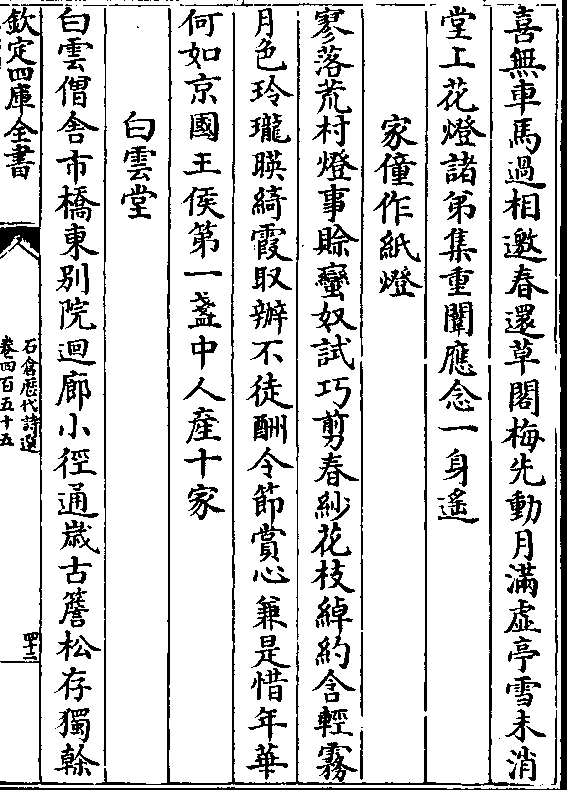 喜無車馬過相邀春還草閣梅先動月滿虚亭雪未消
堂上花燈諸弟集重闈應念一身遙
家僮作紙燈
寥落荒村燈事賒蠻奴試巧剪春紗花枝綽約含輕霧
月色玲瓏暎綺霞取辦不徒酬令節賞心兼是惜年華
何如京國王侯第一盞中人產十家
白雲堂
白雲僧舍市橋東别院迴廊小徑通歲古簷松存獨榦
欽定四庫全書
石倉歴代詩選
卷四百五十五
四十二